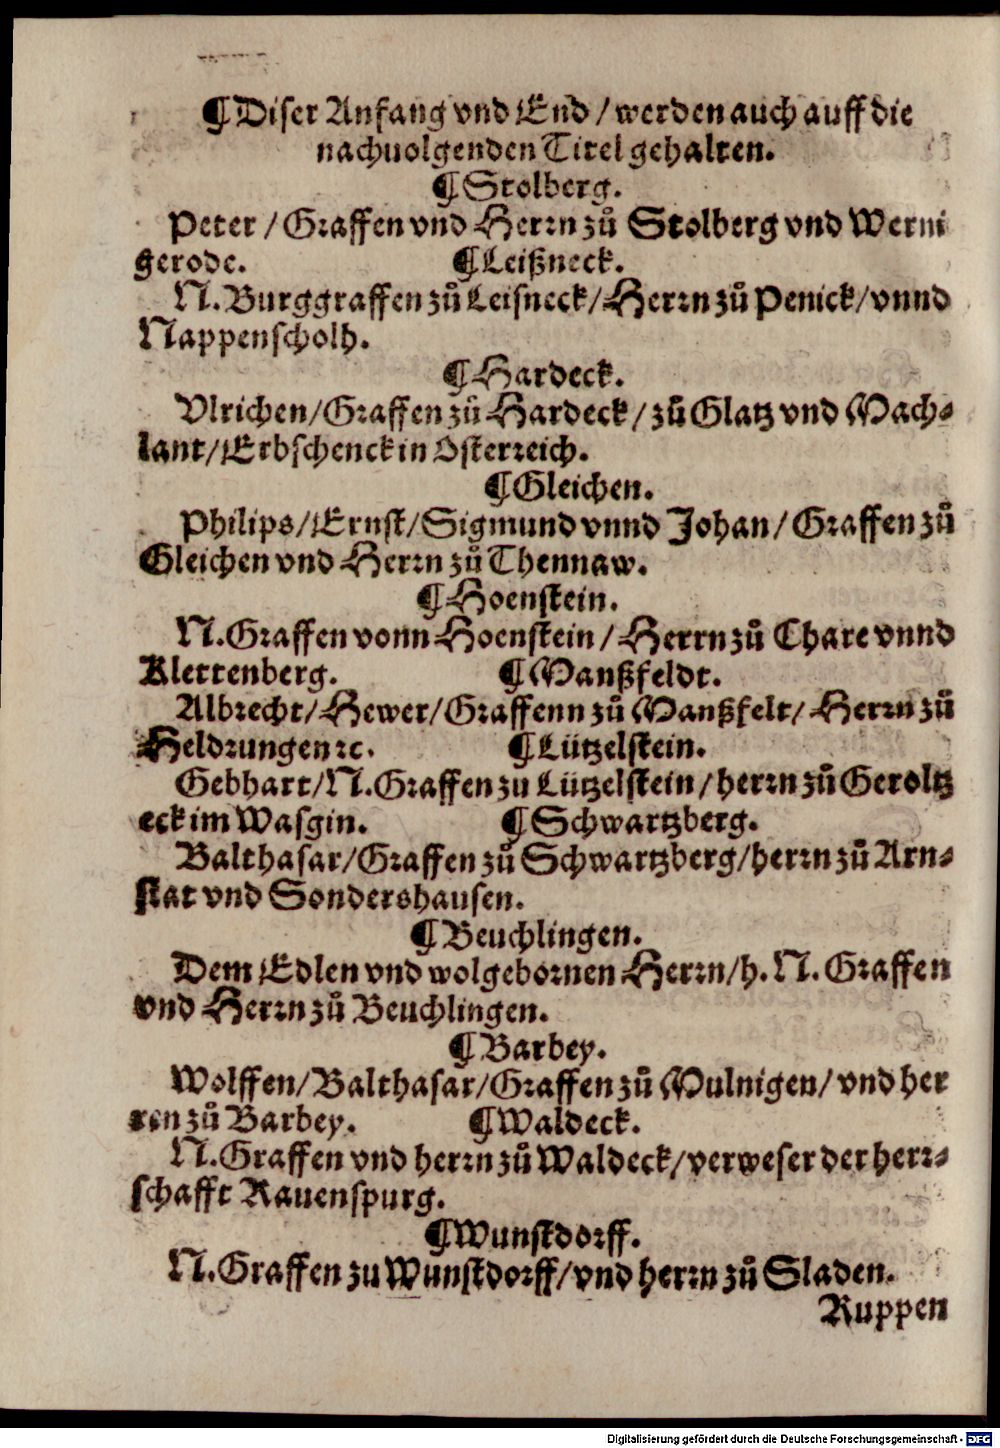 ¶Diser Anfang vnd End / werden auch auff die
nachuolgenden Titel gehalten.
¶Stolberg.
Peter / Graffen vnd Herrn zů Stolberg vnd Werni
gerode. ¶Leißneck.
N. Burggraffen zů Leisneck / Herrn zů Penick / vnnd
Nappenscholh.
¶Hardeck.
Vlrichen / Graffen zů Hardeck / zů Glatz vnd Mach⸗
lant / Erbschenck in Osterreich.
¶Gleichen.
Philips / Ernst / Sigmund vnnd Johan / Graffen zů
Gleichen vnd Herrn zů Thennaw.
¶Hoenstein.
N. Graffen vonn Hoenstein / Herrn zů Chare vnnd
Klettenberg. ¶Manßfeldt.
Albrecht / Hewer / Graffenn zů Manßfelt / Herrn zů
Heldrungen ꝛc. ¶Lützelstein.
Gebhart / N. Graffen zu Lützelstein / herrn zů Geroltz
eck im Wasgin. ¶Schwartzberg.
Balthasar / Graffen zů Schwartzberg / herrn zů Arn⸗
stat vnd Sondershausen.
¶Beuchlingen.
Dem Edlen vnd wolgebornen Herrn / h. N. Graffen
vnd Herrn zů Beuchlingen.
¶Barbey.
Wolffen / Balthasar / Graffen zů Mulnigen / vnd her
ren zů Barbey. ¶Waldeck.
N. Graffen vnd herrn zů Waldeck / verweser der herr⸗
schafft Rauenspurg.
¶Wunstdorff.
N. Graffen zu Wunstdorff / vnd herrn zů Sladen.
Ruppen
Digitalisierung gefördert durch die Deutsche Forschungsgemeinschaft - DFG